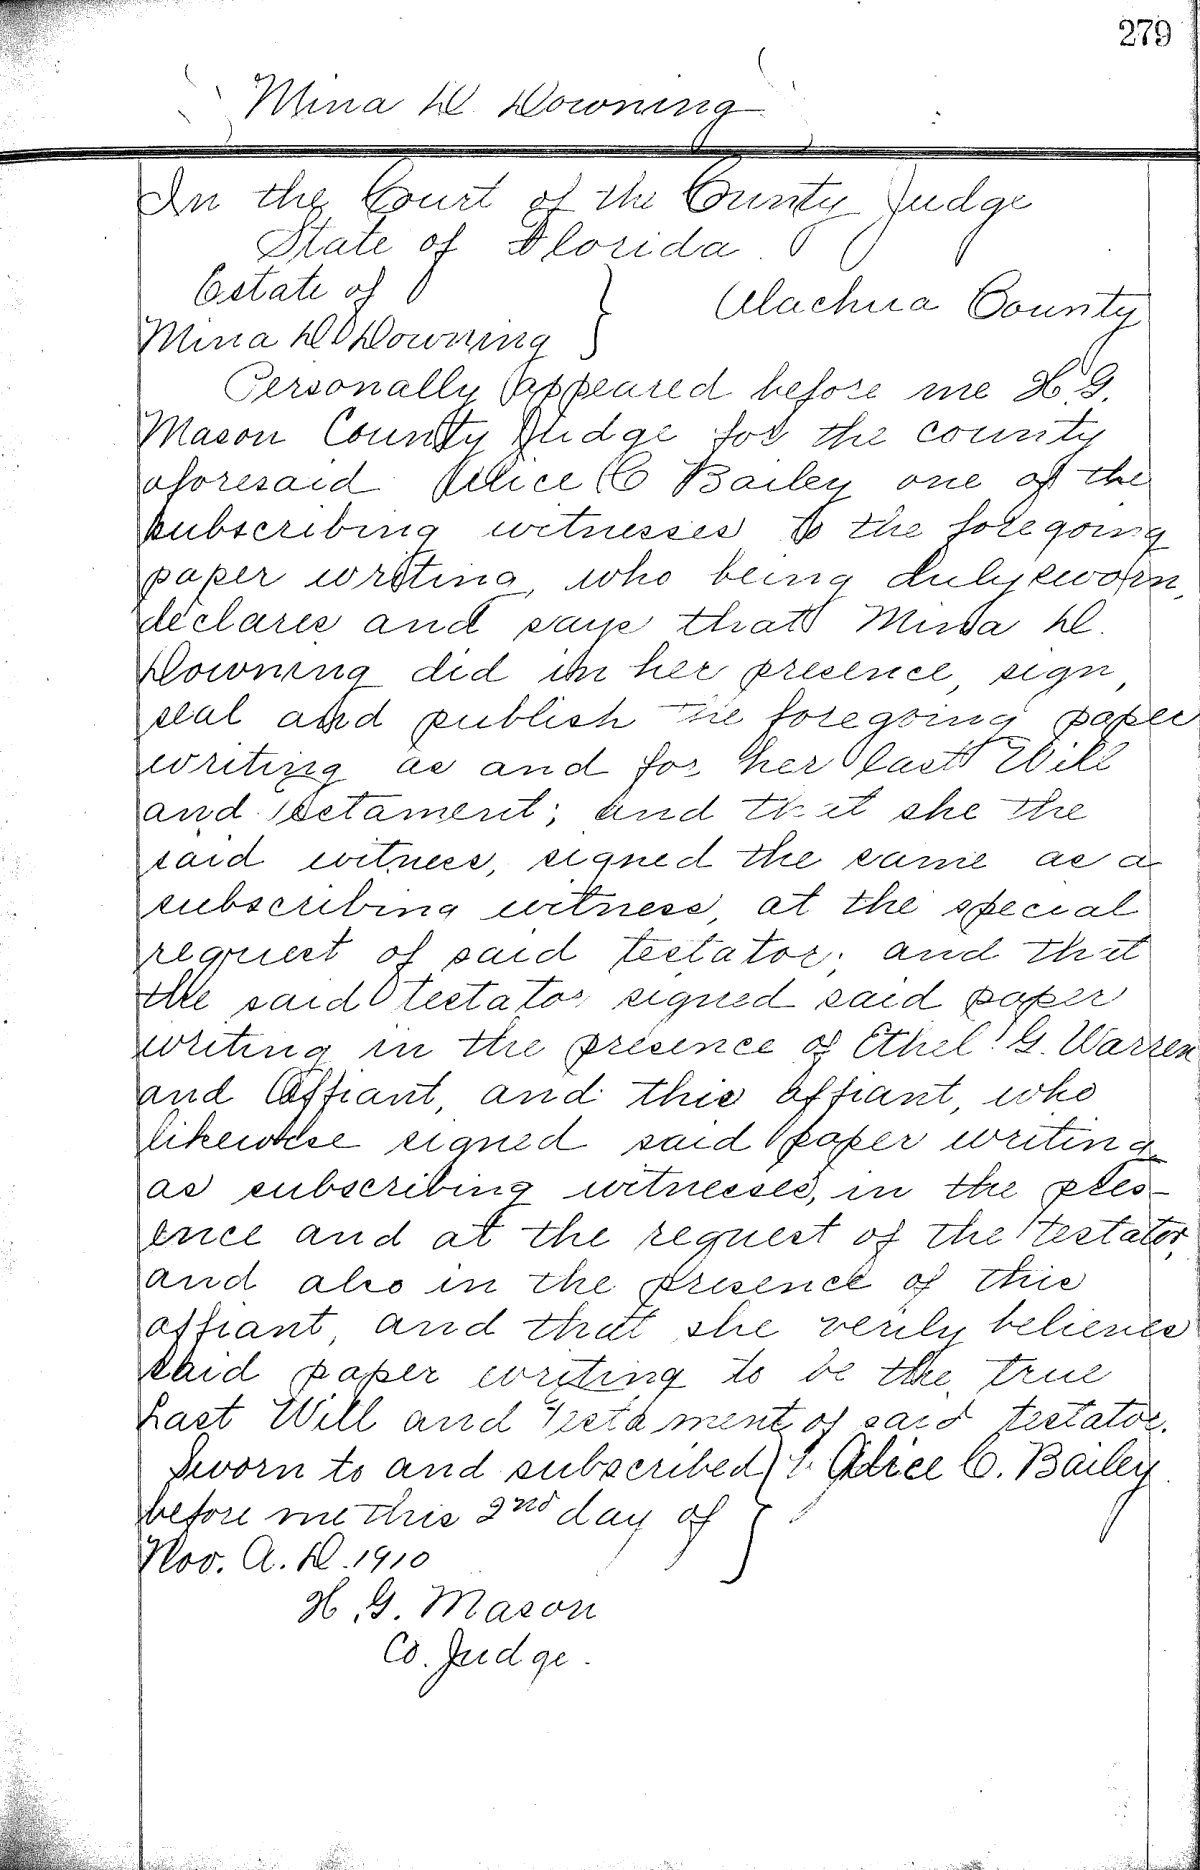 279
Mina D. Downing
In the Court of the County Judge
State of Florida
Estate of
Mina D. Downing } Alachua County
Personally appeared before me H. G.
Mason County Judge for the county
aforesaid Alice C Bailey one of the
subscribing witnesses to the foregoing
paper writing, who being duly sworn,
declares and says that Mina D.
Downing did in her presence, sign,
seal and publish the foregoing paper
writing as and for her last Will
and Testament; and that she the
said witness, signed the same as a
subscribing witness, at the special
request of said testator; and that
the said testator signed said paper
writing in the presence of Ethel G. Warren
and Affiant, and this affiant, who
likewise signed said paper writing
as subscribing witnesses, in the pres-
ence and at the request of the testator,
and also in the presence of this
affiant, and that she verily believes
said paper writing to be the true
Last Will and Testament of said testator.
Sworn to and subscribed } Alice C. Bailey
before me this 2nd day of
Nov. A. D. 1910
H. G. Mason
Co. Judge.